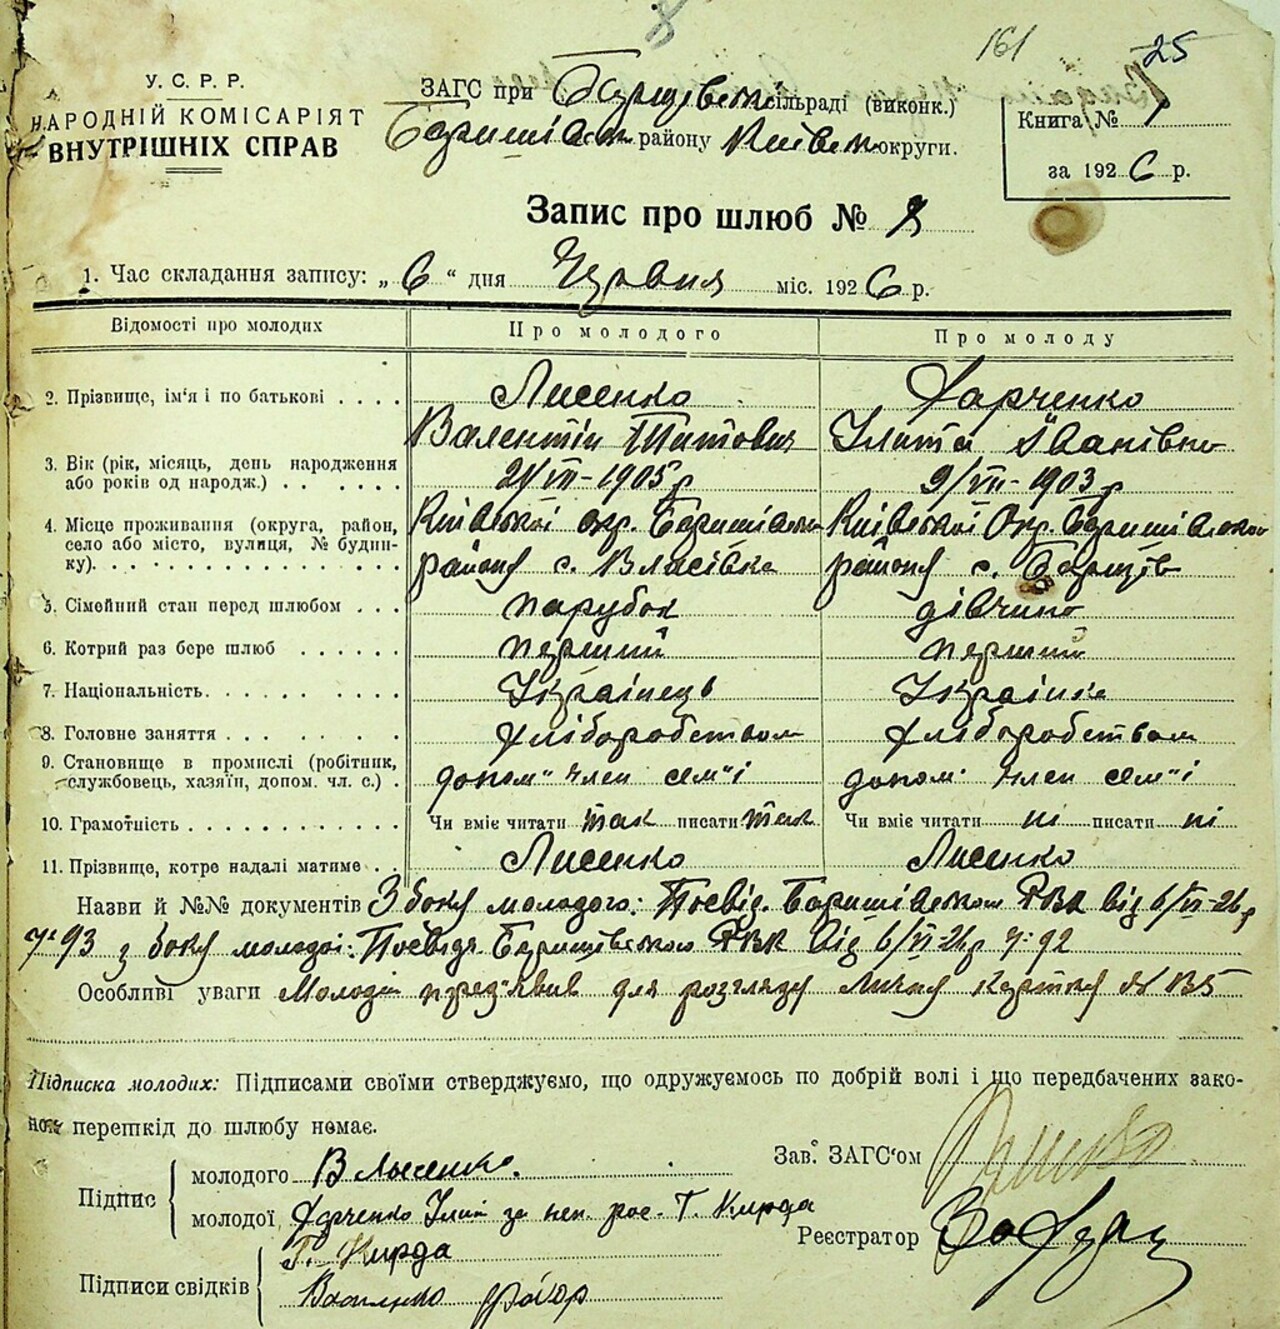 161 25
У. С. Р. Р.
НАРОДНІЙ КОМІСАРІЯТ
ВНУТРІШНІХ СПРАВ
ЗАГС при сільраді (виконк.)
Баришівськ району Київськ округи.
Книга № 1
за 1926 р.
Запис про шлюб № 8
1. Час складання запису: „6“ дня Червня міс. 1926 р.
Відомості про молодих Про молодого Про молоду
2. Прізвище, ім‘я і по батькові . . . . Лисенко Харченко
Валентін Титович Улита Іванівна
3. Вік (рік, місяць, день народження
або років од народж.) . . . . . . 21/VII-1905 р 9/VII-1903 р
4. Місце проживання (округа, район,
село або місто, вулиця, № будин-
ку). . . . . . . . . . . . . . . .
Київської окр. Баришівськ Київської Окр. Баришівського
району с. Власівка району с.
5. Сімейний стан перед шлюбом . . . парубок дівчина
6. Котрий раз бере шлюб . . . . . . перший перший
7. Національність. . . . . . . . . . Українець Українка
8. Головне заняття . . . . . . . . хліборобством хліборобством
9. Становище в промислі (робітник,
службовець, хазяїн, допом. чл. с.) . допом" член сем"ї допом. член сем"ї
10. Грамотність . . . . . . . . . . . . Чи вміє читати так писати так Чи вміє читати ні писати ні
11. Прізвище, котре надалі матиме . . Лисенко Лисенко
Назви й №№ документів З боку молодого: Посвід. Баришівського РВК від 6/VI-26 р
ч. 93 з боку молодої: Посвідч. Баришівського РВК від 6/VI-26 р ч. 92
Особливі уваги Молодий пред"явив для розгляду лична картка № 135
Підписка молодих: Підписами своїми стверджуємо, що одружуємось по добрій волі і що передбачених зако-
ном перешкід до шлюбу немає.
Підпис
молодого В Лысенко.
молодої Харченко за неп. рос. Г. Кирда
Підписи свідків
Г. Кирда
Василенко
Зав. ЗАГС‘ом
Реєстратор